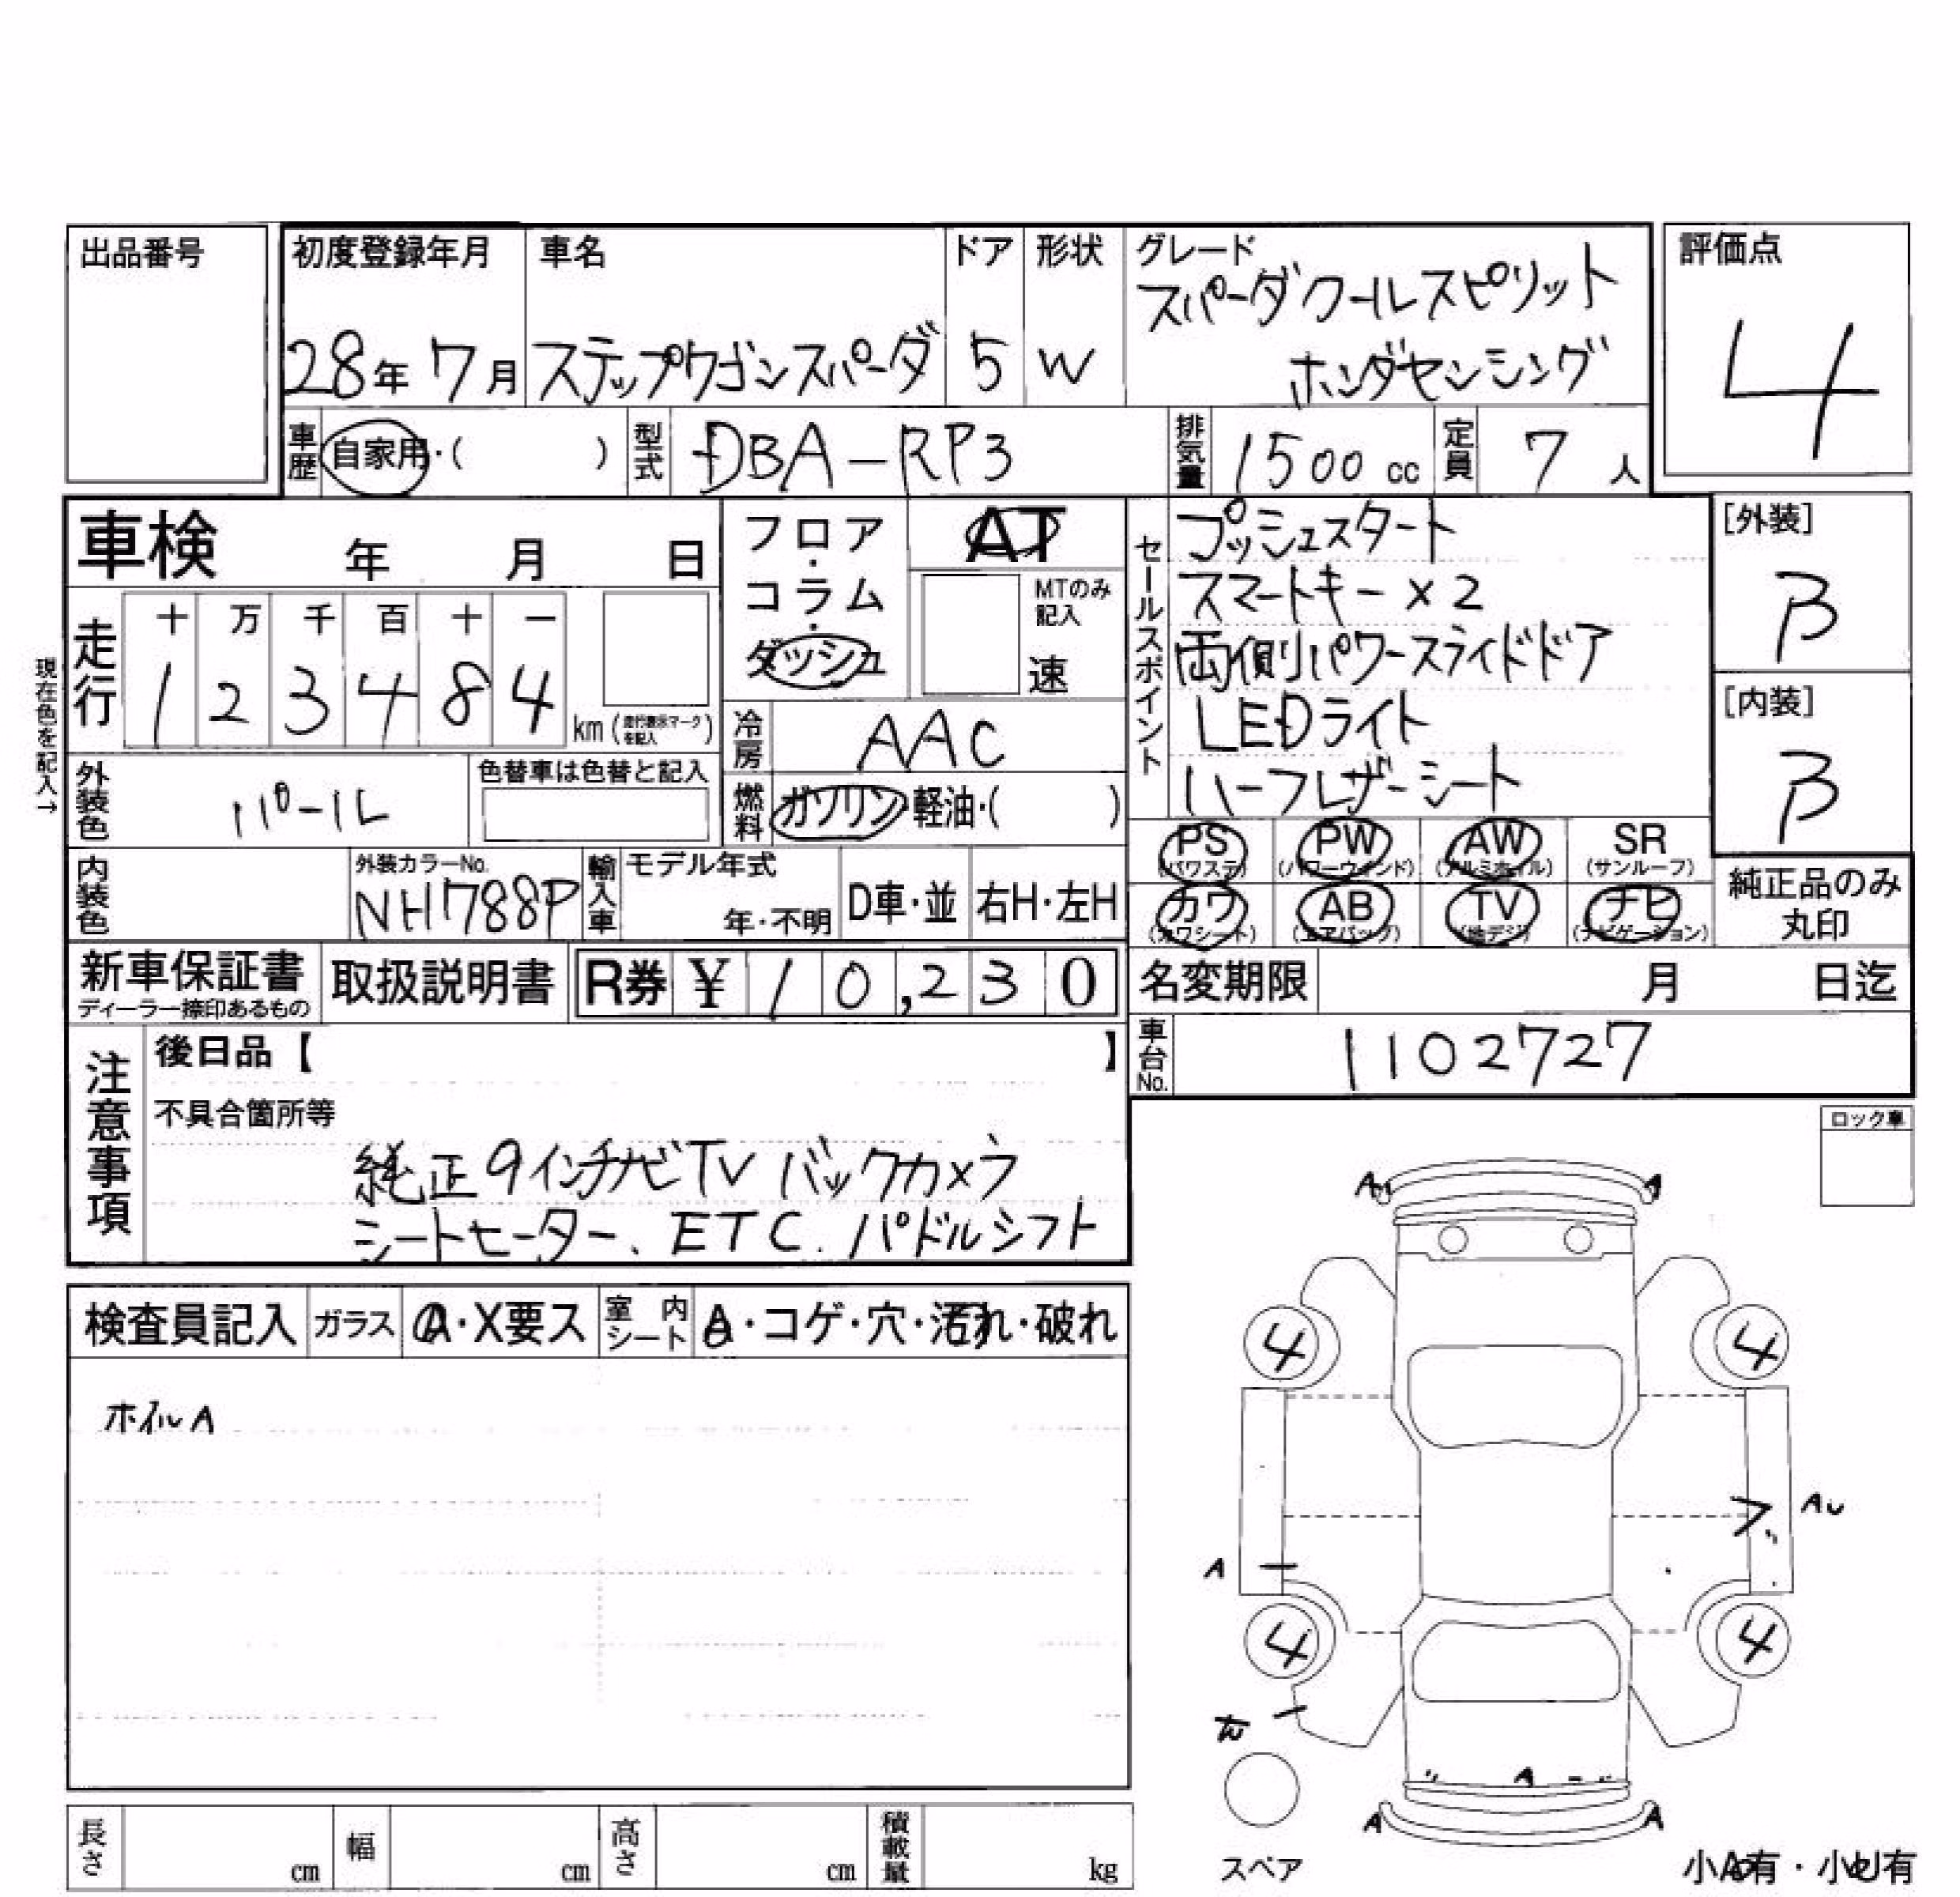 出品番号
初度登録年月
28年 7月
車名
ステップワゴンスパーダ
ドア
5
形状
W
グレード
スパーダクールスピリット
ホンダセンシング
評価点
4
車歴
自家用・( )
型式
DBA-RP3
排気量
1500 cc
定員
7 人
車検 年 月 日
フロア・コラム・ダッシュ
AT
MTのみ記入
速
セールスポイント
プッシュスタート
スマートキー×2
両側パワースライドドア
LEDライト
ハーフレザーシート
[外装]
B
[内装]
B
現在色を記入→
走行
十 万 千 百 十 一
1 2 3 4 8 4
km (走行表示マークを記入)
冷房
AAC
外装色
パール
色替車は色替と記入
燃料
ガソリン・軽油・( )
PS (パワステ) PW (パワーウインド) AW (アルミホイル) SR (サンルーフ)
カワ (カワシート) AB (エアバッグ) TV (地デジ) ナビ (ナビゲーション)
純正品のみ
丸印
内装色
外装カラーNo.
NH788P
輸入車
モデル年式
年・不明
D車・並
右H・左H
新車保証書
ディーラー捺印あるもの
取扱説明書
R券 ¥ 10,230
名変期限 月 日迄
車台No.
1102727
注意事項
後日品【 】
不具合箇所等
純正9インチナビTV バックカメラ
シートヒーター、ETC、パドルシフト
ロック車
検査員記入
ガラス
A・X要ス
室内シート
A・コゲ・穴・汚れ・破れ
ホイルA
A A
4 4
AU
A
4 4
A
A A
スペア
小A有・小U有
長さ cm
幅 cm
高さ cm
積載量 kg